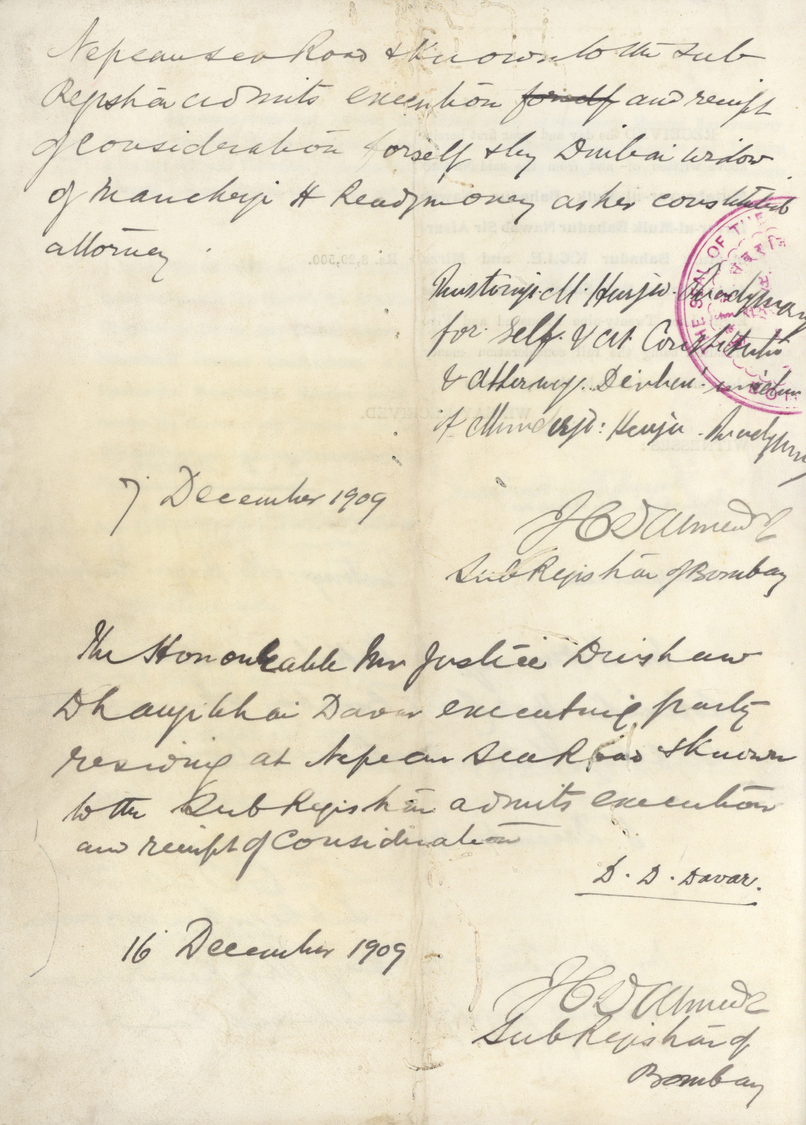 Nepean sea Road & Known to the Sub
Registrar admits execution forself and receipt
of consideration forself & by Dinbai widow
of Mancherji H Readymoney as her constituted
attorney.
for Self & as Constituted
& attorney
7 December 1909
J C D'Almeida
Sub Registrar of Bombay
The Honourable Mr Justice Dinshaw
Dhanjibhai Davar executing party
residing at Nepean Sea Road & Known
to the Sub Registrar admits execution
and receipt of Consideration
D. D. Davar.
16 December 1909
J C D'Almeida
Sub Registrar of
Bombay
THE SEAL OF THE